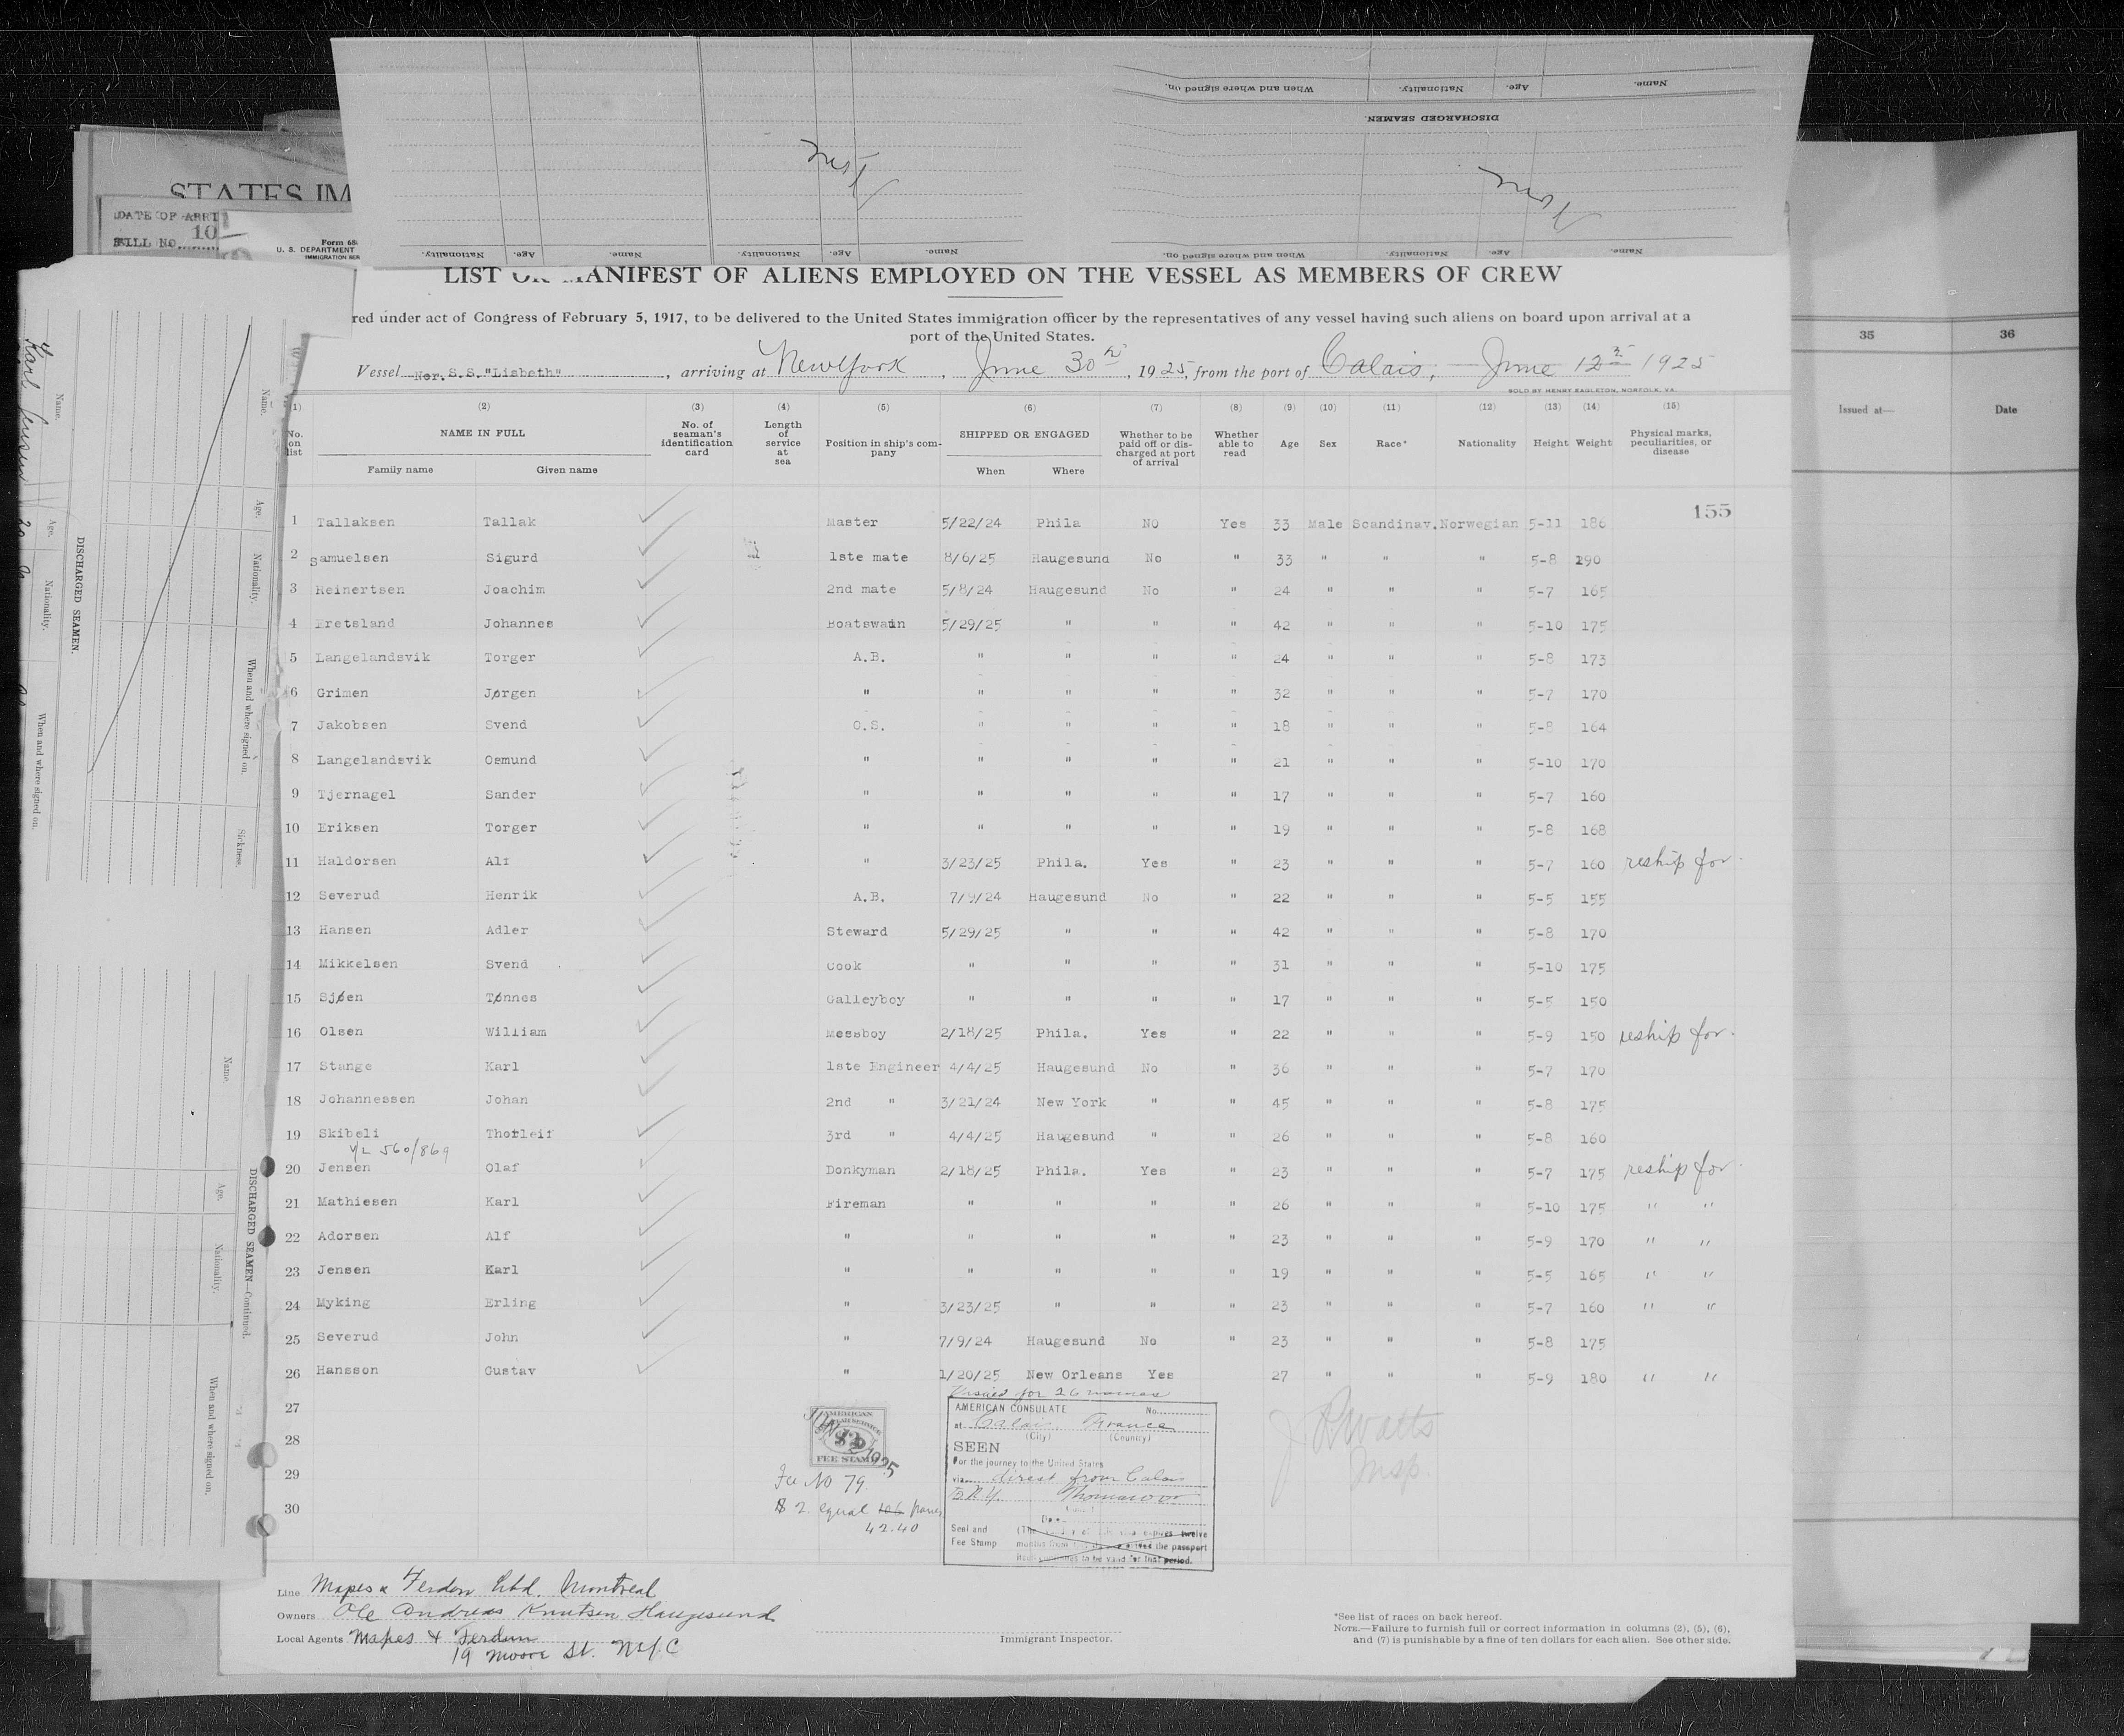 Name.
Age.
Nationality.
When and where signed on.
DISCHARGED SEAMEN.
Name. Age. Nationality. Name. Age. Nationality. When and where signed on. Nationality. Age. Name.
STATES IM
DATE OF ARRI
BILL NO. 10
Form 68
U. S. DEPARTMENT
IMMIGRATION SER
LIST OR MANIFEST OF ALIENS EMPLOYED ON THE VESSEL AS MEMBERS OF CREW
red under act of Congress of February 5, 1917, to be delivered to the United States immigration officer by the representatives of any vessel having such aliens on board upon arrival at a
port of the United States.
Vessel Nor. S.S. "Lisbeth", arriving at New York, June 30th, 1925, from the port of Calais, June 12th 1925
SOLD BY HENRY EAGLETON, NORFOLK, VA.
(1) (2) (3) (4) (5) (6) (7) (8) (9) (10) (11) (12) (13) (14) (15)
No. on list
NAME IN FULL
Family name Given name
No. of seaman's identification card
Length of service at sea
Position in ship's company
SHIPPED OR ENGAGED
When Where
Whether to be paid off or discharged at port of arrival
Whether able to read
Age Sex Race* Nationality Height Weight
Physical marks, peculiarities, or disease
155
1 Tallaksen Tallak Master 5/22/24 Phila NO Yes 33 Male Scandinav. Norwegian 5-11 186
2 Samuelsen Sigurd 1ste mate 8/6/25 Haugesund No " 33 " " " 5-8 190
3 Reinertsen Joachim 2nd mate 5/8/24 Haugesund No " 24 " " " 5-7 165
4 Eretsland Johannes Boatswain 5/29/25 " " " 42 " " " 5-10 175
5 Langelandsvik Torger A.B. " " " " 24 " " " 5-8 173
6 Grimen Jørgen " " " " " 32 " " " 5-7 170
7 Jakobsen Svend O.S. " " " " 18 " " " 5-8 164
8 Langelandsvik Osmund " " " " " 21 " " " 5-10 170
9 Tjernagel Sander " " " " " 17 " " " 5-7 160
10 Eriksen Torger " " " " " 19 " " " 5-8 168
11 Haldorsen Alf " 3/23/25 Phila. Yes " 23 " " " 5-7 160 reship for
12 Severud Henrik A.B. 7/9/24 Haugesund No " 22 " " " 5-5 155
13 Hansen Adler Steward 5/29/25 " " " 42 " " " 5-8 170
14 Mikkelsen Svend Cook " " " " 31 " " " 5-10 175
15 Sjøen Tønnes Galleyboy " " " " 17 " " " 5-5 150
16 Olsen William Messboy 2/18/25 Phila. Yes " 22 " " " 5-9 150 reship for
17 Stange Karl 1ste Engineer 4/4/25 Haugesund No " 36 " " " 5-7 170
18 Johannessen Johan 2nd " 3/21/24 New York " " 45 " " " 5-8 175
19 Skibeli Thorleif 3rd " 4/4/25 Haugesund " " 26 " " " 5-8 160
560/869
20 Jensen Olaf Donkyman 2/18/25 Phila. Yes " 23 " " " 5-7 175 reship for
21 Mathiesen Karl Fireman " " " " 26 " " " 5-10 175 " "
22 Adorsen Alf " " " " " 23 " " " 5-9 170 " "
23 Jensen Karl " " " " " 19 " " " 5-5 165 " "
24 Myking Erling " 3/23/25 " " " 23 " " " 5-7 160 " "
25 Severud John " 7/9/24 Haugesund No " 23 " " " 5-8 175
26 Hansson Gustav " 1/20/25 New Orleans Yes 27 " " " 5-9 180 " "
27
28
29
30
Visaed for 26 names
AMERICAN CONSULATE No.
at Calais France
(City) (Country)
SEEN
For the journey to the United States
via direct from Calais
to N.Y.
Date
Seal and Fee Stamp
AMERICAN
$2
FEE STAMP
JUN 12 1925
Fee No 79.
$ 2. equal francs
42.40
Watts
Insp.
Line Mapes & Ferdon Ltd. Montreal
Owners Ole Andreas Knutsen Haugesund
Local Agents Mapes & Ferdon
19 Moore St. NYC
Immigrant Inspector.
*See list of races on back hereof.
NOTE.—Failure to furnish full or correct information in columns (2), (5), (6),
and (7) is punishable by a fine of ten dollars for each alien. See other side.
35 36
Issued at— Date
Name. Age. Nationality. When and where signed on. Sickness.
DISCHARGED SEAMEN.
Name. Age. Nationality. When and where signed on.
Name. Age. Nationality. When and where signed on.
DISCHARGED SEAMEN—Continued.